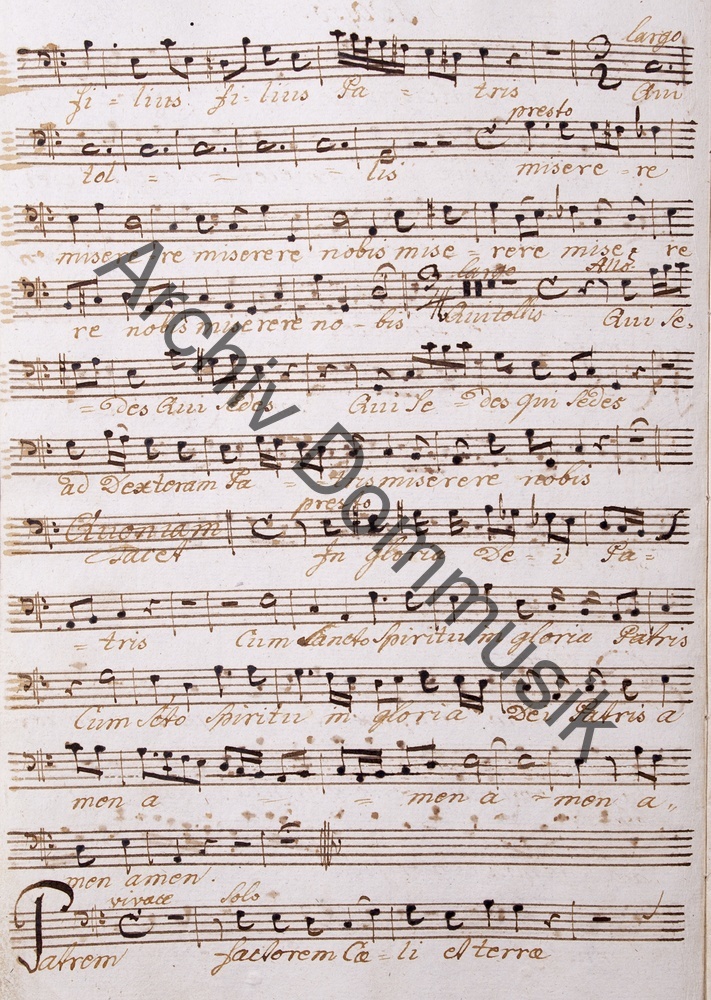 largo
fi = lius fi = lius Pa - tris Qui
presto
tol = = - lis misere - re
misere re miserere nobis mise = rere mise = re
largo Allo:
re nobis miserere no - bis Quitollis Qui se,
= des Qui sedes Qui Se = des qui sedes
ad Dexteram Pa = tris miserere nobis
presto
Quoniam
tacet In gloria De = i Pa =
= tris Cum Sancto Spiritu in gloria Patris
Cum Scto Spiritu in gloria Dei Patris a
men a - = men a - men a,,
men amen.
vivace Solo
Patrem factorem Cæ = li et terræ
Archiv Dommusik